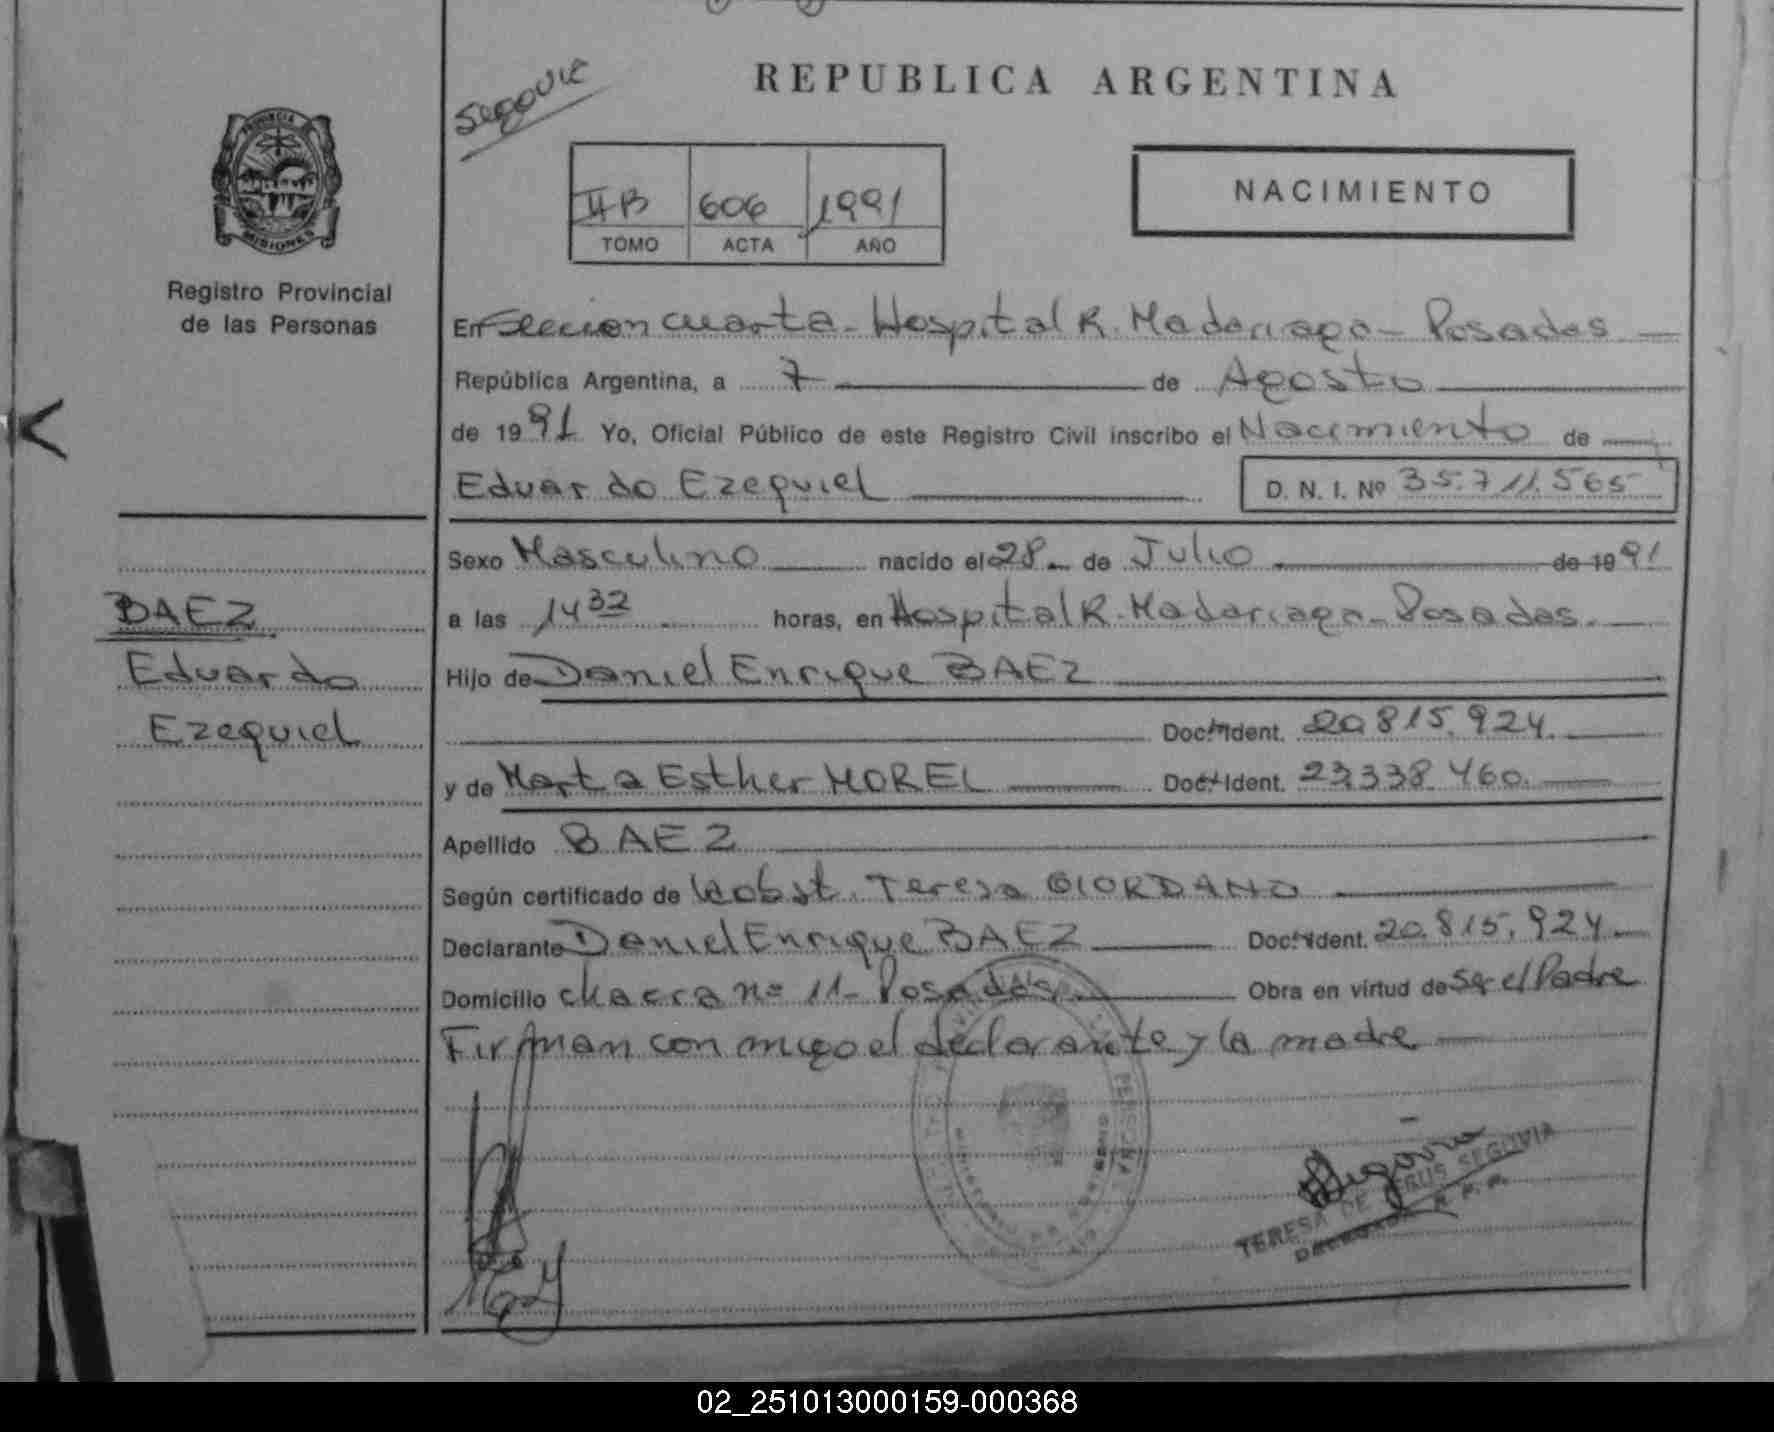 REPUBLICA ARGENTINA
Segovia
PROVINCIA DE
MISIONES
Registro Provincial
de las Personas
II B 606 1991
TOMO ACTA AÑO
NACIMIENTO
En Seccion cuarta - Hospital R. Madariaga - Posadas
República Argentina, a 7 de Agosto
de 1991 Yo, Oficial Público de este Registro Civil inscribo el Nacimiento de
Eduardo Ezequiel D. N. I. Nº 35.711.565
Sexo Masculino nacido el 28 de Julio de 1991
BAEZ
Eduardo
Ezequiel
a las 14 32 horas, en Hospital R. Madariaga - Posadas.
Hijo de Daniel Enrique BAEZ
Doc. Ident. 20.815.924.
y de Marta Esther MOREL Doc. Ident. 23.338.460.
Apellido BAEZ
Según certificado de Teresa GIORDANO
Declarante Daniel Enrique BAEZ Doc. Ident. 20.815.924
Domicilio chacra nº 11 - Posadas Obra en virtud de Ser el Padre
Firman con migo el declarante y la madre
Segovia
TERESA DE JESUS SEGOVIA
DELEGADA R. P. P.
02_251013000159-000368